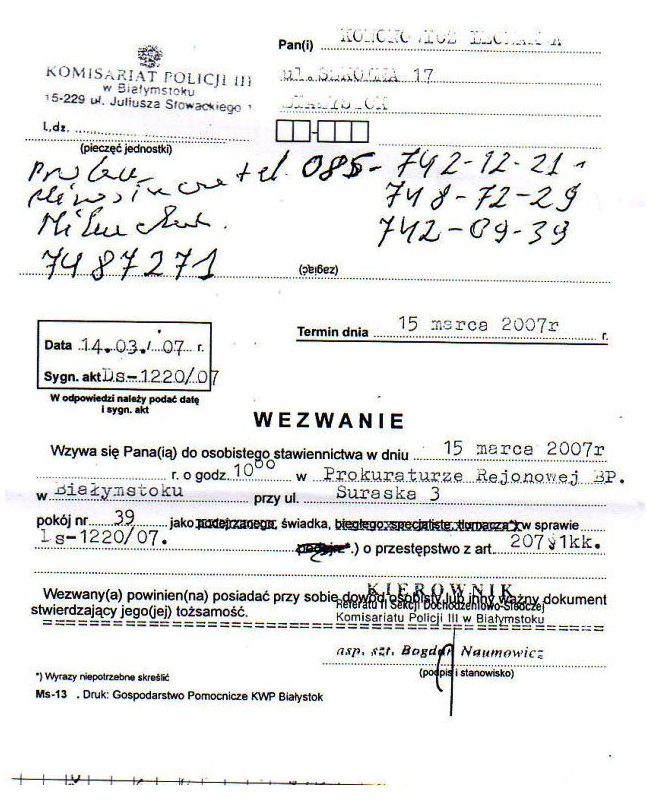 Pan(i)
KOMISARIAT POLICJI III
w Białymstoku
15-229 ul. Juliusza Słowackiego 1
17
L.dz.
(pieczęć jednostki)
tel 085- 742-12-21
748-72-29
742-09-39
7487271
(zagiąć)
Termin dnia 15 marca 2007r r.
Data 14.03./ 07 r.
Sygn. akt Ds-1220/07
W odpowiedzi należy podać datę
i sygn. akt
WEZWANIE
Wzywa się Pana(ią) do osobistego stawiennictwa w dniu 15 marca 2007r
r. o godz. 10⁰⁰ w Prokuraturze Rejonowej BP.
w Białymstoku przy ul. Suraska 3
pokój nr 39 jako podejrzanego, świadka, biegłego, specjalistę, tłumacza*) w sprawie
Ds-1220/07. *.) o przestępstwo z art. 207§1kk.
Wezwany(a) powinien(na) posiadać przy sobie dowód osobisty lub inny ważny dokument
stwierdzający jego(jej) tożsamość.
KIEROWNIK
Referatu II Sekcji Dochodzeniowo-Śledczej
Komisariatu Policji III w Białymstoku
asp. szt. Bogdan Naumowicz
(podpis i stanowisko)
*) Wyrazy niepotrzebne skreślić
Ms-13 . Druk: Gospodarstwo Pomocnicze KWP Białystok